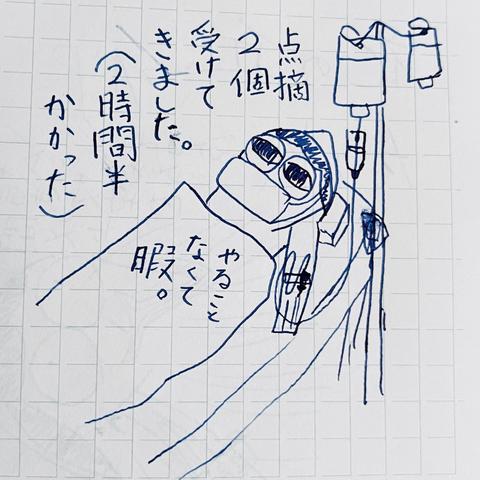 点摘
2個
受けて
きました。
(2時間半
かかった)
やること
なくて
暇。